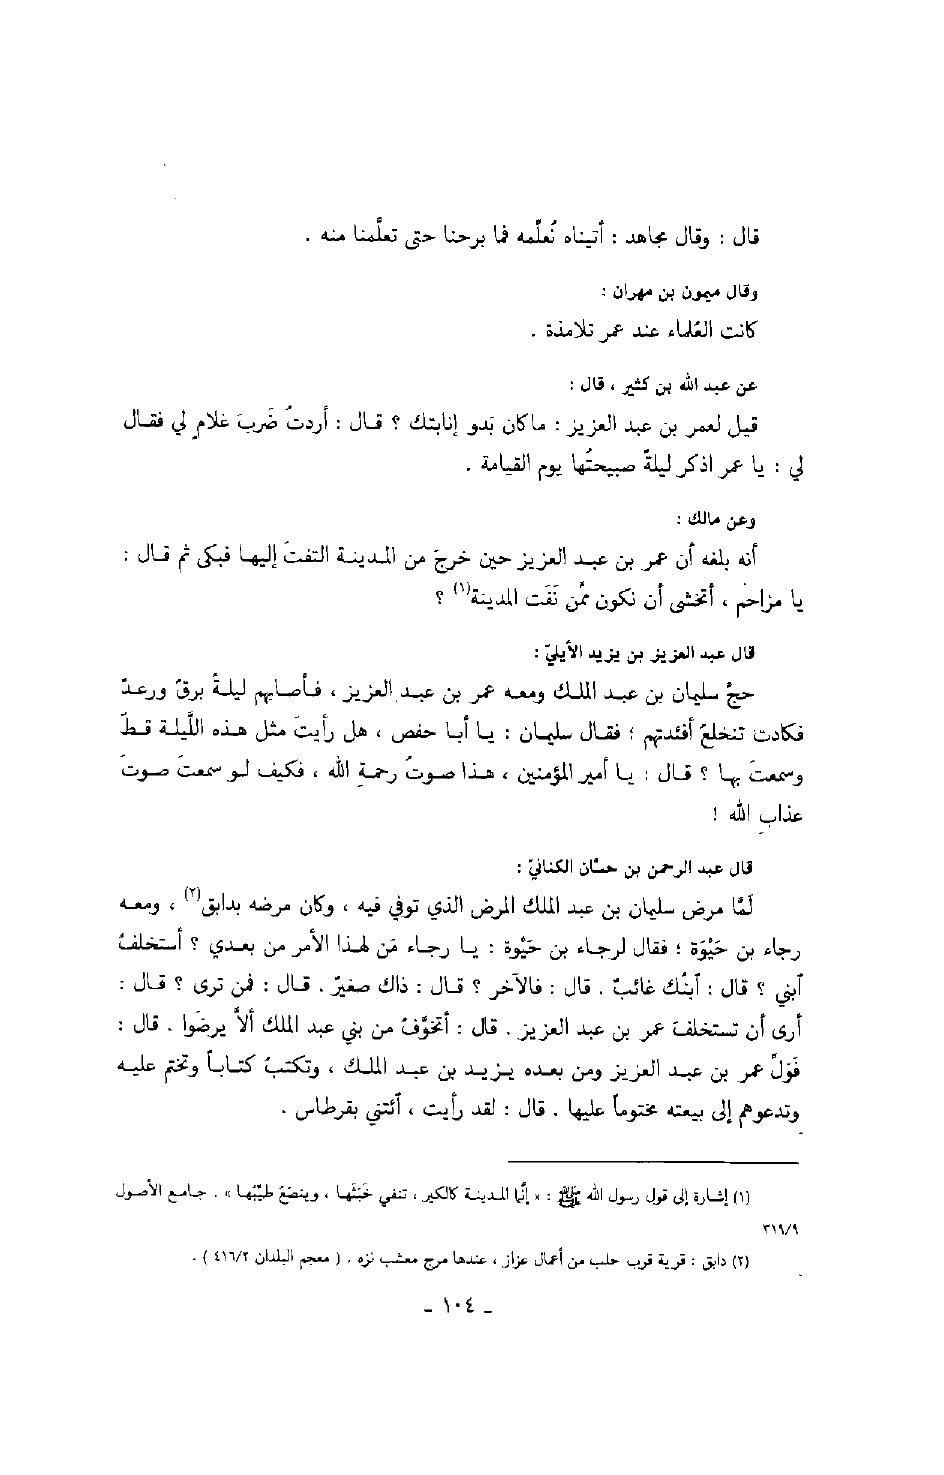 قال : وقال مجاهد : أتيناه نُعلِّمه فما برحنا حتى تعلَّمنا منه .
وقال ميمون بن مهران :
كانت العُلماء عند عمر تلامذة .
عن عبد الله بن كثير ، قال :
قيل لعمر بن عبد العزيز : ماكان بَدو إنابتك ؟ قال : أردتُ ضَربَ غلامٍ لي فقال
لي : يا عمر اذكر ليلةً صبيحتُها يوم القيامة .
وعن مالك :
أنه بلغه أن عمر بن عبد العزيز حين خرجَ من المدينة التفتَ إليها فبكى ثم قال :
يا مزاحم ، أتخشى أن نكون ممَّن نَفَت المدينة(١) ؟
قال عبد العزيز بن يزيد الأيليّ :
حجَّ سليمان بن عبد الملك ومعه عمر بن عبد العزيز ، فأصابهم ليلةً برقٌ ورعدٌ
فكادت تنخلعُ أفئدتهم ؛ فقال سليمان : يا أبا حفص ، هل رأيتَ مثل هذه اللَّيلة قطّ
وسمعتَ بها ؟ قال : يا أمير المؤمنين ، هذا صوتُ رحمةِ الله ، فكيف لو سمعتَ صوتَ
عذابِ الله !
قال عبد الرحمن بن حسَّان الكنانيّ :
لمَّا مرض سليمان بن عبد الملك المرض الذي توفي فيه ، وكان مرضه بدابق(٢) ، ومعه
رجاء بن حَيْوَة ؛ فقال لرجاء بن حَيْوة : يا رجاء مَن لهذا الأمر من بعدي ؟ أستخلفُ
آبني ؟ قال : آبنُك غائبٌ . قال : فالآخر ؟ قال : ذاك صغيرٌ . قال : فمن ترى ؟ قال :
أرى أن تستخلفَ عمر بن عبد العزيز . قال : أتخوَّفُ من بني عبد الملك ألاَّ يرضَوا . قال :
فَوَلِّ عمر بن عبد العزيز ومن بعده يزيد بن عبد الملك ، وتكتبُ كتاباً وتختم عليه
وتدعوهم إلى بيعته مختوماً عليها . قال : لقد رأيت ، آئتني بقرطاس .
(١) إشارة إلى قول رسول الله ﷺ : « إنَّما المدينة كالكير ، تنفي خَبَثَها ، وينصَعُ طيِّبُها » . جامع الأصول
٣١٩/٩
(٢) دابق : قرية قرب حلب من أعمال عزاز ، عندها مرج معشب نزه . ( معجم البلدان ٤١٦/٢ ) .
- ١٠٤ -